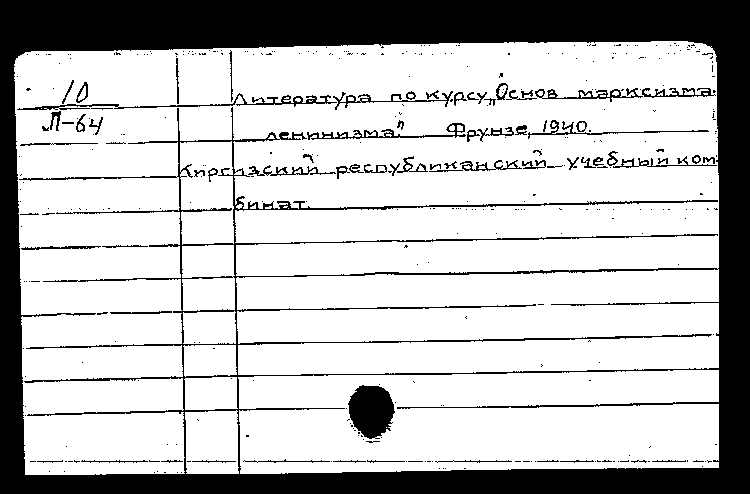 10
Л-64
Литература по курсу „Основ марксизма-
ленинизма". Фрунзе, 1940.
Киргизский республиканский учебный ком-
бинат.